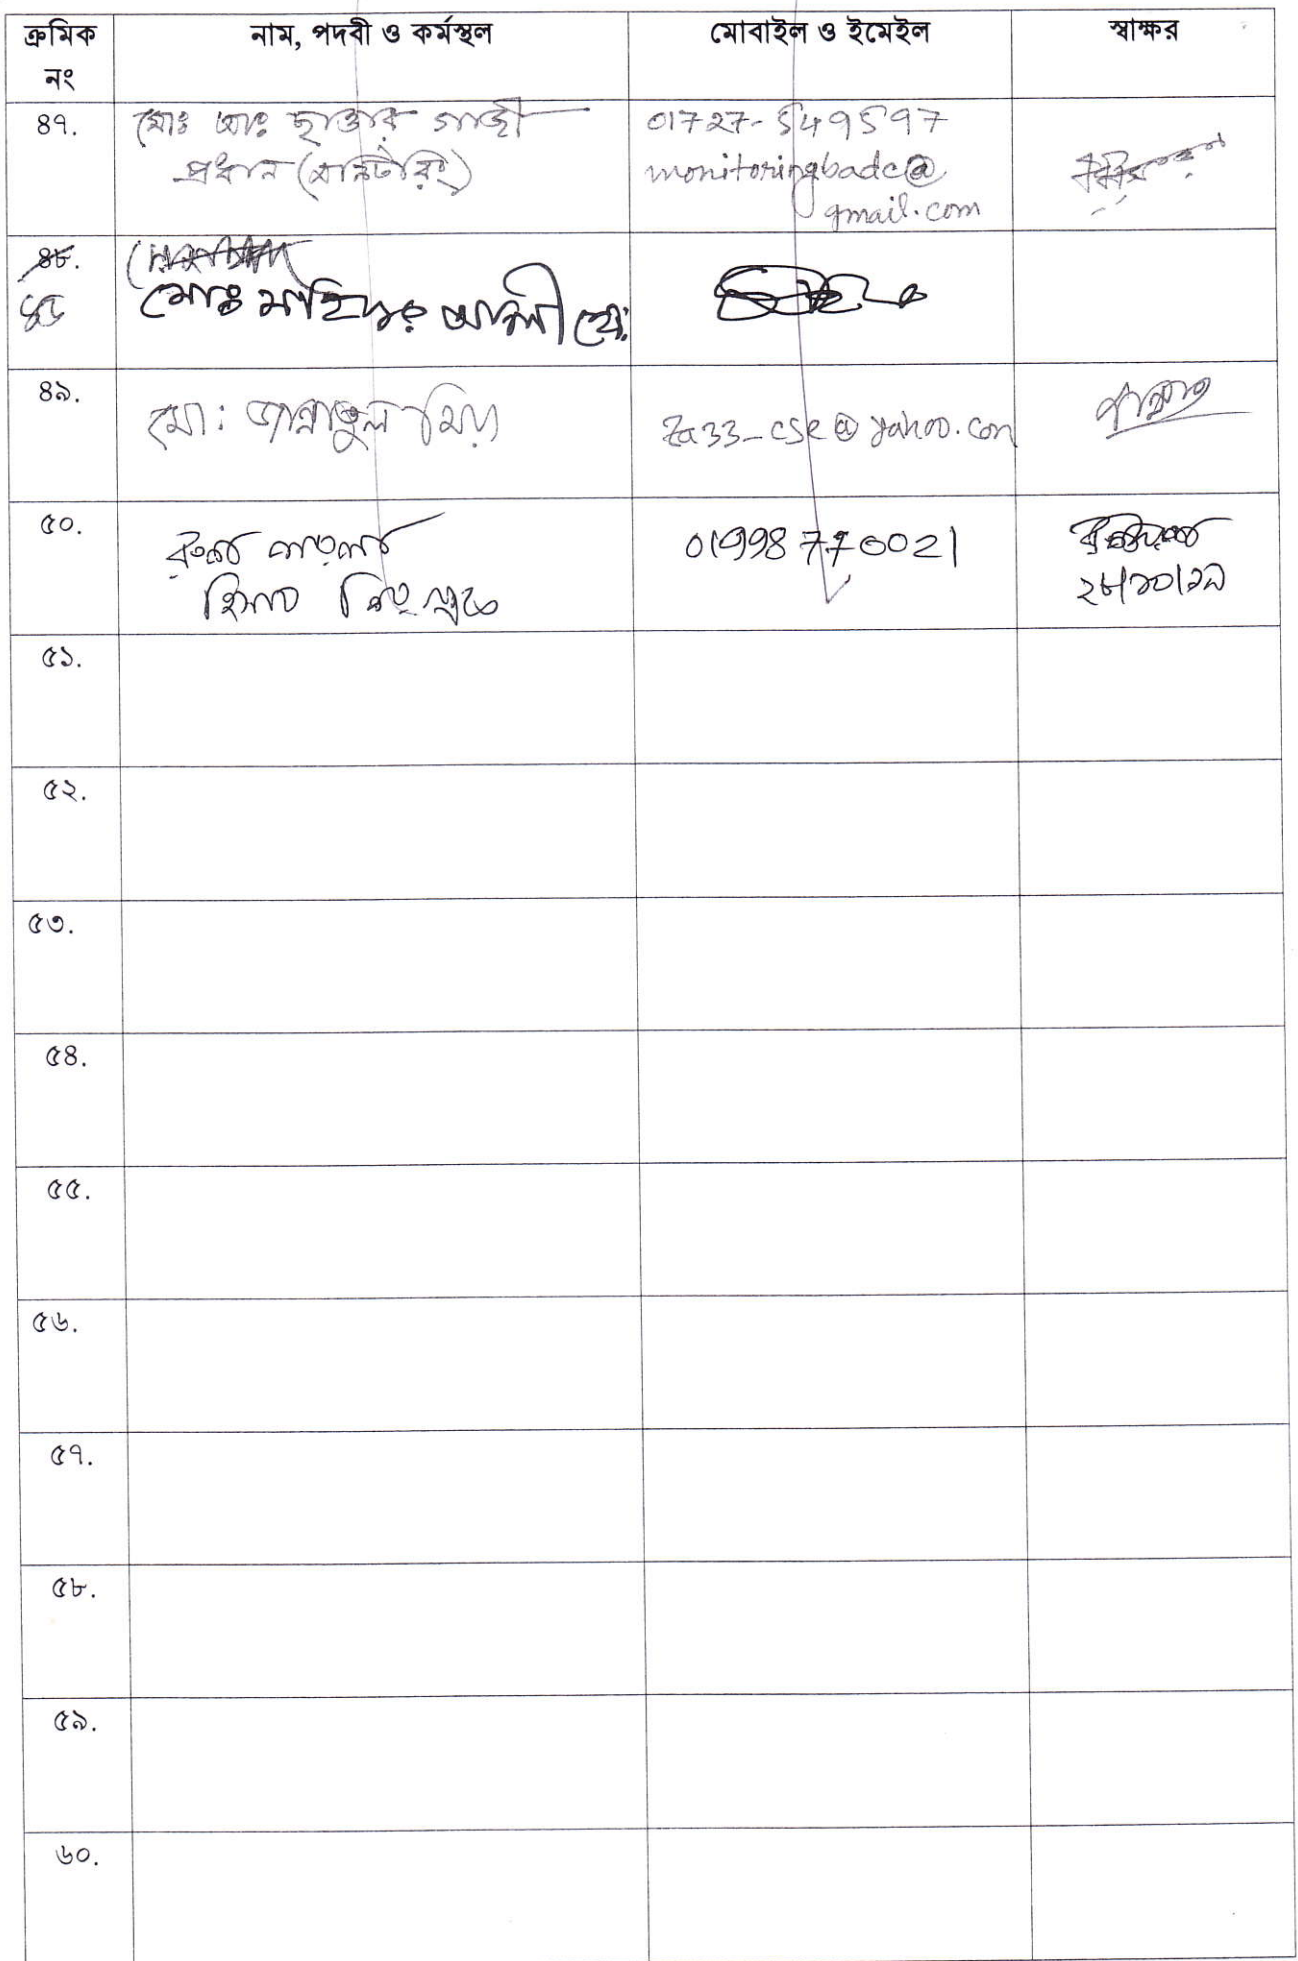 ক্রমিক নং	নাম, পদবী ও কর্মস্থল	মোবাইল ও ইমেইল	স্বাক্ষর
৪৭.	মোঃ আঃ ছাত্তার গাজী	01727-549597
প্রধান (মনিটরিং)	monitoringbadc@
gmail.com
৪৮.
৪৮	মোঃ মাহিদুর আলী
৪৯.	মো: জান্নাতুল মিয়া	za33_cse@yahoo.com
৫০.	01998770021
হিসাব	২৮/১০/২১
৫১.
৫২.
৫৩.
৫৪.
৫৫.
৫৬.
৫৭.
৫৮.
৫৯.
৬০.